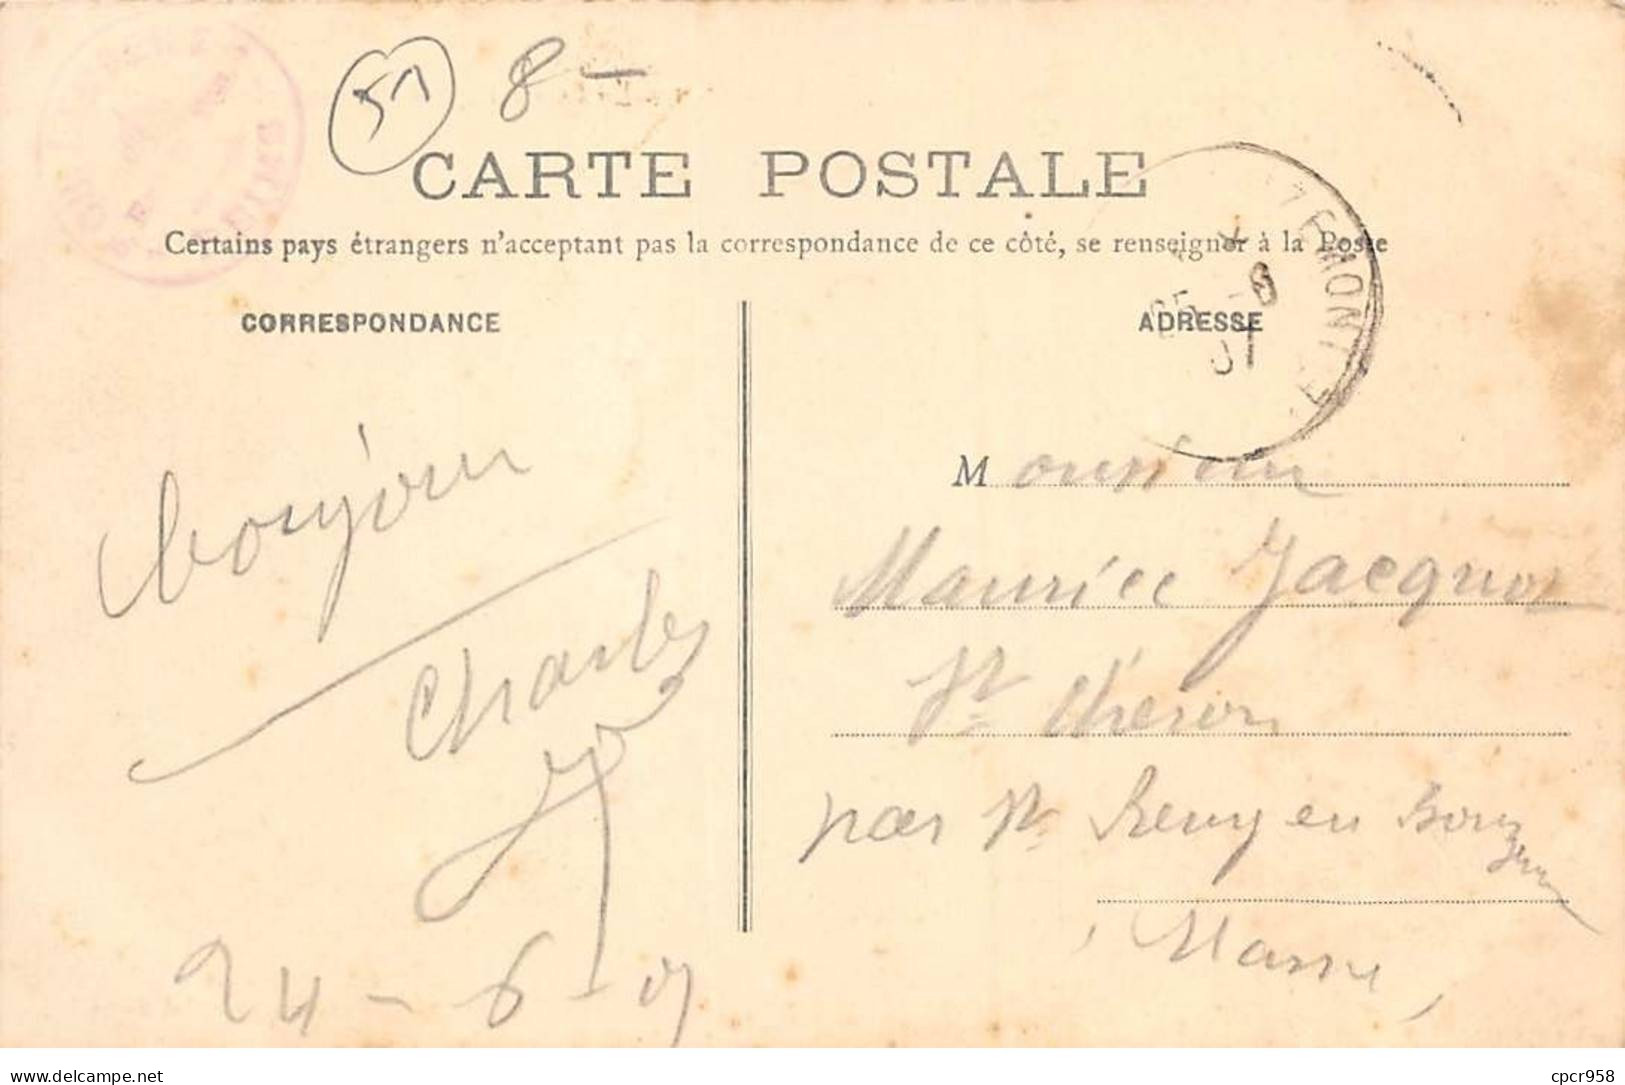 51 8 –
CARTE POSTALE
Certains pays étrangers n'acceptant pas la correspondance de ce côté, se renseigner à la Poste
CORRESPONDANCE
ADRESSE
bonjour
Charles
24 - 6 - 07
Monsieur
Maurice Jacquot
St Chéron
par St Remy en Bouzemont
Marne
REIMS
25 - 6
07
delcampe.net
cpcr958